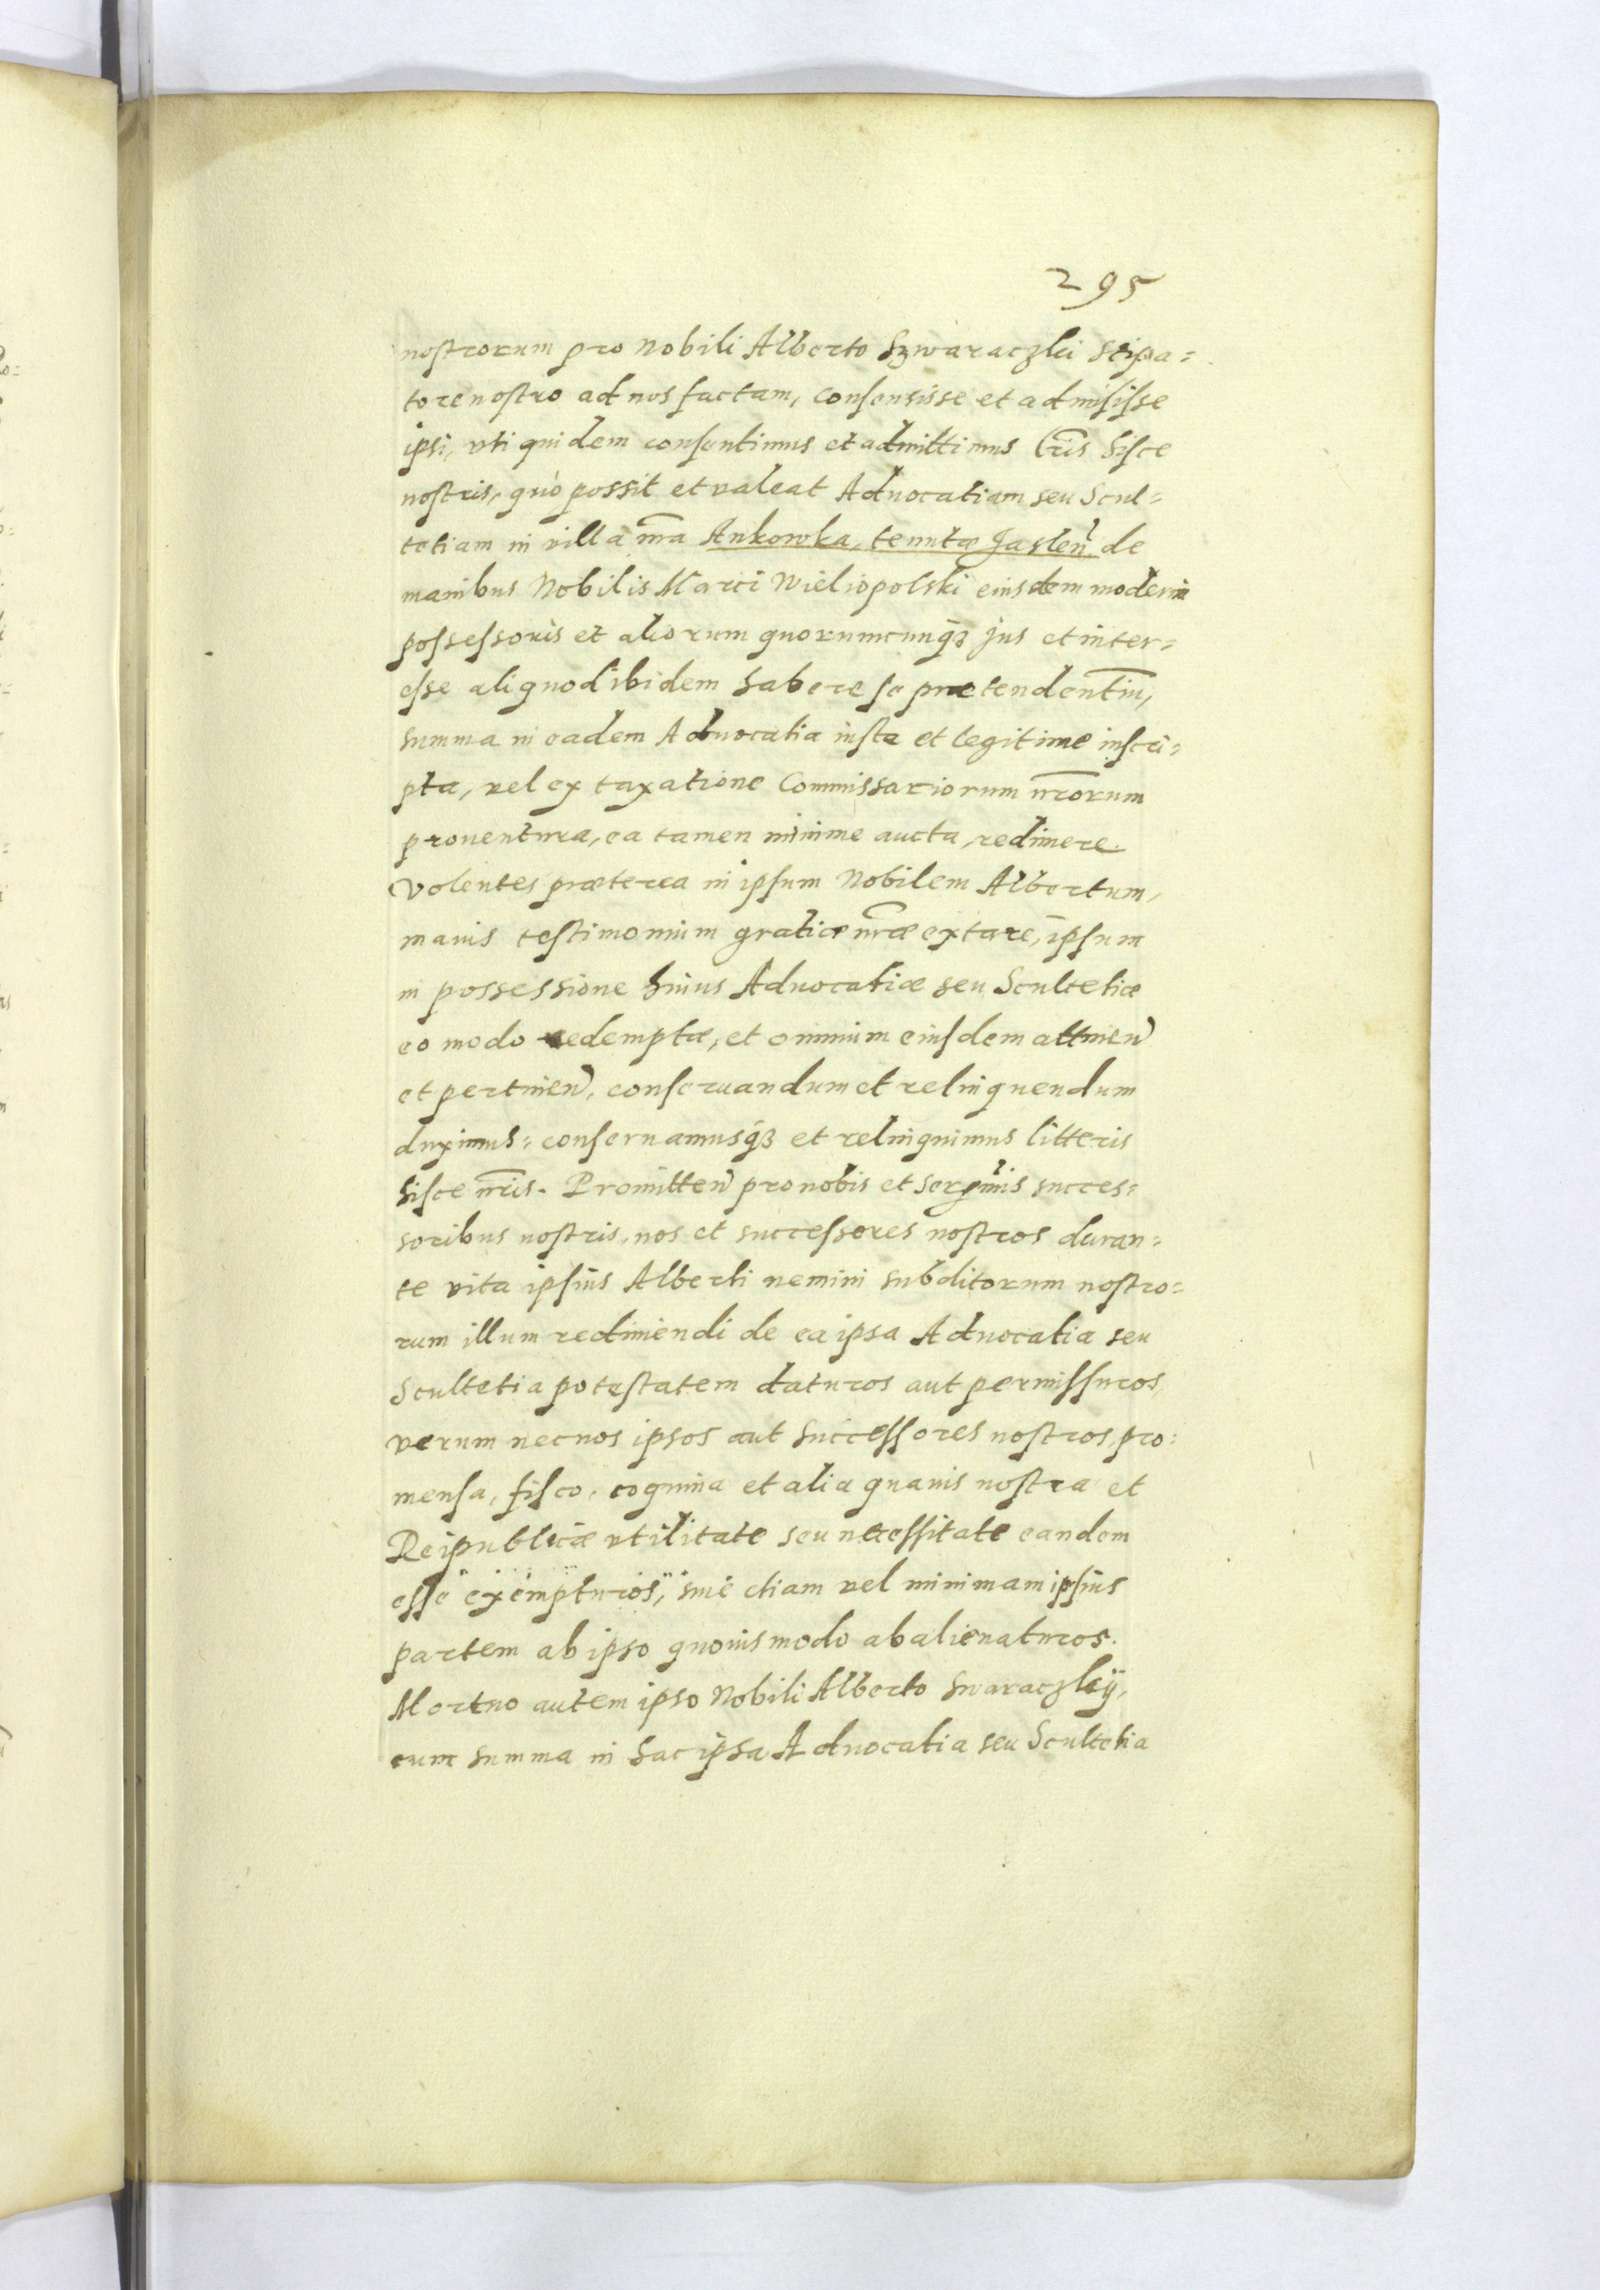 295
nostrorum pro Nobili Alberto Szwaraczki stipa=
tore nostro ad nos factam, consensisse et admisisse
ipsi, vti quidem consentimus et admittimus Lris hisce
nostris, quò possit et valeat Aduocatiam seu Scul=
tetiam in villa nra Ankowka, tenutæ Jaslen de
manibus Nobilis Marci Wieliopolski eiusdem moderni
possessoris et aliorum quorumcunqȝ jus et inter=
esse aliquod ibidem habere se prætendentiu,
summa in eadem Aduocatia iuste et legitime inscri=
pta, vel ex taxatione Commissariorum nrorum
prouentura, ea tamen minime aucta, redimere.
Volentes præterea in ipsum Nobilem Albertum,
maius testimonium gratiæ nræ extare, ipsum
in possessione huius Aduocatiæ seu Scultetiæ
eo modo redemptæ, et omnium eiusdem attinen
et pertinen, conseruandum et relinquendum
duximus: conseruamusqȝ et relinquimus litteris
hisce nris. Promitten pro nobis et Sermis succes=
soribus nostris, nos et successores nostros duran=
te vita ipsius Alberti nemini subditorum nostro=
rum illum redimendi de ea ipsa Aduocatia seu
Scultetia potestatem daturos aut permissuros,
verum nec nos ipsos aut successores nostros, pro
mensa, fisco, coquina et alia quauis nostra et
Reipublicæ vtilitate seu necessitate eandem
esse exempturos, siue etiam vel minimam ipsius
partem ab ipso quouismodo abalienaturos.
Mortuo autem ipso Nobili Alberto Swaraczkÿ,
cum summa in hac ipsa Aduocatia seu Scultetia